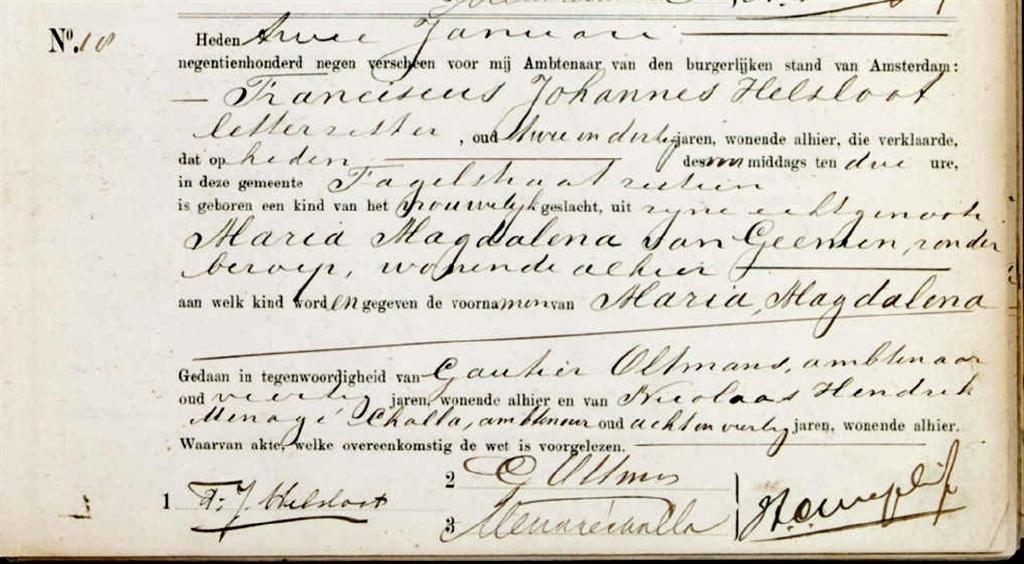 No. 18
Heden twee Januari
negentienhonderd negen verscheen voor mij Ambtenaar van den burgerlijken stand van Amsterdam:
Franciscus Johannes Helsloot
letterzetter, oud twee en dertig jaren, wonende alhier, die verklaarde,
dat op heden des voor middags ten drie ure,
in deze gemeente Fagelstraat zestien
is geboren een kind van het vrouwelijk geslacht, uit zijne echtgenoote
Maria Magdalena van Geemen, zonder
beroep, wonende alhier
aan welk kind worden gegeven de voornamen van Maria, Magdalena
Gedaan in tegenwoordigheid van Gautier Oltmans, ambtenaar
oud veertig jaren, wonende alhier en van Nicolaas Hendrik
Menagé Challa, ambtenaar oud acht en veertig jaren, wonende alhier.
Waarvan akte, welke overeenkomstig de wet is voorgelezen.
2 G Oltmans
1 F. J. Helsloot
3 Menagéchalla